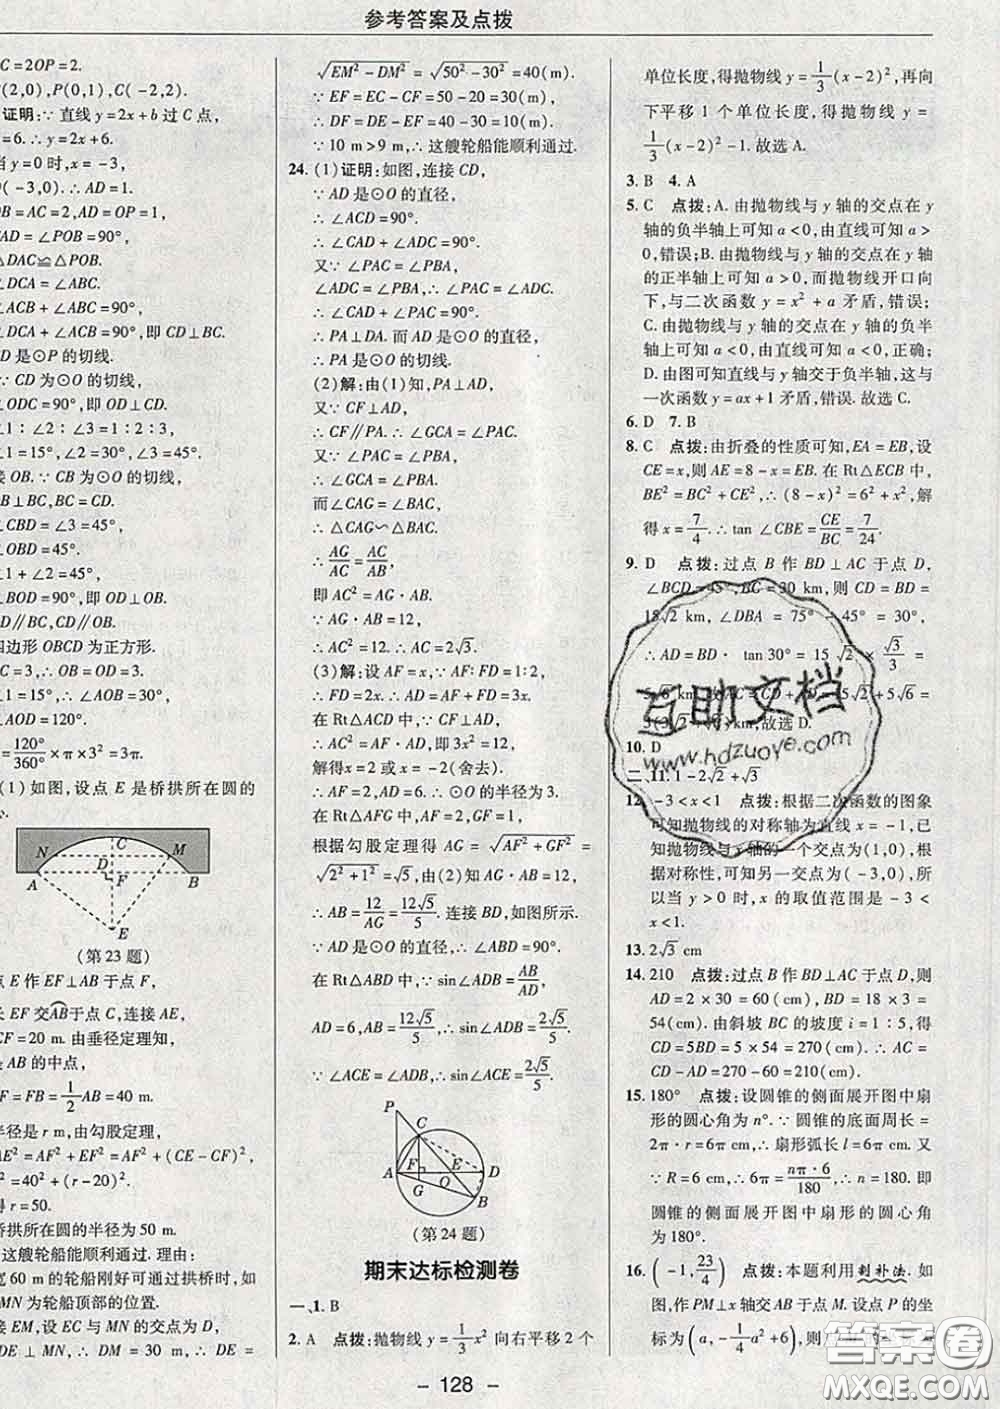 参考答案及点拨
C=2OP=2.
(2,0),P(0,1),C(-2,2).
证明:∵直线y=2x+b过C点,
=6.∴y=2x+6.
当y=0时,x=-3,
(-3,0).∴AD=1.
OB=AC=2,AD=OP=1,
CAD=∠POB=90°,
△DAC≌△POB.
∠DCA=∠ABC.
∠ACB+∠ABC=90°,
∠DCA+∠ACB=90°,即CD⊥BC.
D是⊙P的切线.
∵CD为⊙O的切线,
∠ODC=90°,即OD⊥CD.
∠1:∠2:∠3=1:2:3,
∠1=15°,∠2=30°,∠3=45°.
接OB.∵CB为⊙O的切线,
OB⊥BC,BC=CD.
∠CBD=∠3=45°,
∠OBD=45°.
∠1+∠2=45°,
∠BOD=90°,即OD⊥OB.
OD∥BC,CD∥OB.
四边形OBCD为正方形.
=CD=3,∴OB=OD=3.
∠1=15°,∠2=30°,
∠AOD=120°.
=120°/360°×π×3²=3π.
(1)如图,设点E是桥拱所在圆的
N C M
D
A F B
E
(第23题)
点E作EF⊥AB于点F,
长EF交AB于点C,连接AE,
CF=20 m.由垂径定理知,
是AB的中点,
F=FB=1/2AB=40 m.
半径是r m,由勾股定理,
AE²=AF²+EF²=AF²+(CE-CF)²
²=40²+(r-20)².
得r=50.
桥拱所在圆的半径为50 m.
这艘轮船能顺利通过.理由:
宽60 m的轮船刚好可通过拱桥时,如
MN为轮船顶部的位置.
接EM,设EC与MN的交点为D,
DE⊥MN,∴DM=30 m,∴DE=
√(EM²-DM²)=√(50²-30²)=40(m).
∵EF=EC-CF=50-20=30(m),
∴DF=DE-EF=40-30=10(m).
∵10 m>9 m,∴这艘轮船能顺利通过.
24.(1)证明:如图,连接CD,
∵AD是⊙O的直径,
∴∠ACD=90°.
∴∠CAD+∠ADC=90°.
又∵∠PAC=∠PBA,
∠ADC=∠PBA,∴∠PAC=∠ADC.
∴∠CAD+∠PAC=90°.
∴PA⊥DA.而AD是⊙O的直径,
∴PA是⊙O的切线.
(2)解:由(1)知,PA⊥AD,
又∵CF⊥AD,
∴CF∥PA.∴∠GCA=∠PAC.
又∵∠PAC=∠PBA,
∴∠GCA=∠PBA.
而∠CAG=∠BAC,
∴△CAG∽△BAC.
∴AG/AC=AC/AB,
即AC²=AG·AB.
∵AG·AB=12,
∴AC²=12.∴AC=2√3.
(3)解:设AF=x,∵AF:FD=1:2,
∴FD=2x.∴AD=AF+FD=3x.
在Rt△ACD中,∵CF⊥AD,
∴AC²=AF·AD,即3x²=12,
解得x=2或x=-2(舍去).
∴AF=2,AD=6.∴⊙O半径为3.
在Rt△AFG中,AF=2,GF=1,
根据勾股定理得AG=√(AF²+GF²)=
√(2²+1²)=√5,由(2)知AG·AB=12,
∴AB=12/AG=12√5/5.连接BD,如图所示.
∵AD是⊙O的直径,∴∠ABD=90°.
在Rt△ABD中,∵sin∠ADB=AB/AD,
AD=6,AB=12√5/5,∴sin∠ADB=2√5/5.
∵∠ACE=∠ADB,∴sin∠ACE=2√5/5.
P
C
A F E D
G O
B
(第24题)
期末达标检测卷
一、1.B
2.A 点拨:抛物线y=1/3x²向右平移2个
单位长度,得抛物线y=1/3(x-2)²,再向
下平移1个单位长度,得抛物线y=
1/3(x-2)²-1.故选A.
3.B 4.A
5.C 点拨:A.由抛物线与y轴的交点在y
轴的负半轴上可知a<0,由直线可知a>
0,错误;B.由抛物线与y轴的交点在y轴
的正半轴上可知a>0,而抛物线开口向
下,与二次函数y=x²+a矛盾,错误;
C.由抛物线与y轴的交点在y轴的负半
轴上可知a<0,由直线可知a<0,正确;
D.由图可知直线与y轴交于负半轴,这与
一次函数y=ax+1矛盾,错误.故选C.
6.D 7.B
8.C 点拨:由折叠的性质可知,EA=EB,设
CE=x,则AE=8-x=EB.在Rt△ECB中,
BE²=BC²+CE²,∴(8-x)²=6²+x²,解
得x=7/4.∴tan∠CBE=CE/BC=7/24.
9.D 点拨:过点B作BD⊥AC于点D,
∠BCD=45°,BC=30 km,则CD=BD=
15√2 km,∠DBA=75°-45°=30°,
∴AD=BD·tan30°=15√2×√3/3=
5√6 km,∴AC=CD+AD=15√2+5√6=
5(3√2+√6)km,故选D.
10.D
二、11.1-2√2+√3
12.-3<x<1 点拨:根据二次函数的图象
可知抛物线的对称轴为直线x=-1,已
知抛物线与x轴的一个交点为(1,0),根
据对称性,可知另一交点为(-3,0),所
以当y>0时,x的取值范围是-3<
x<1.
13.2√3 cm
14.210 点拨:过点B作BD⊥AC于点D,则
AD=2×30=60(cm),BD=18×3=
54(cm).由斜坡BC的坡度i=1:5,得
CD=5BD=5×54=270(cm).∴AC=
CD-AD=270-60=210(cm).
15.180° 点拨:设圆锥的侧面展开图中扇
形的圆心角为n°.∵圆锥的底面周长=
2π·r=6π cm,∴扇形弧长l=6π cm.又
∵R=6 cm,∴6π=nπ·6/180,∴n=180.即
圆锥的侧面展开图中扇形的圆心角
为180°.
16.(-1,23/4) 点拨:本题利用割补法.如
图,作PM⊥x轴交AB于点M.设点P的坐
标为(a,-1/4a²+6),则
互助文档
www.hdzuoye.com
答案圈
MXQE.COM
- 128 -